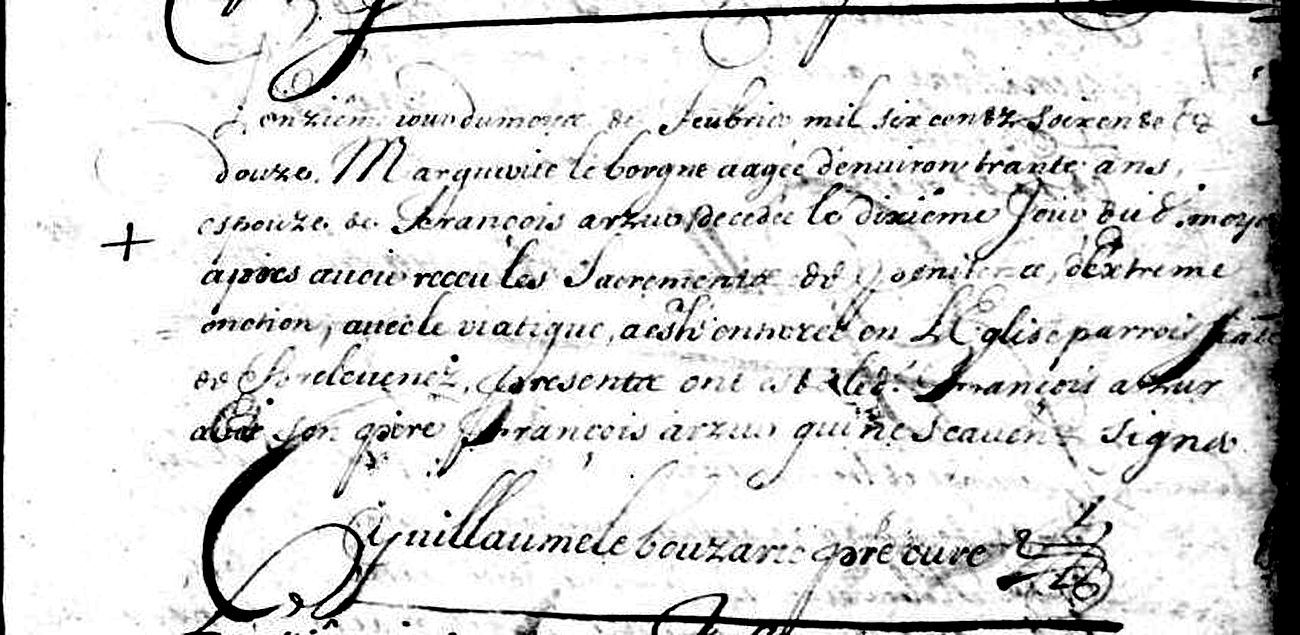 L'onziême iour du moys de feubrier mil six centz soixente et
douze. Marguerite le borgne aagée d'enuiron trante ans,
espouze de françois arzur decedée le dixieme Jour dud. moys
apres auoir receu les Sacrements de penitence, d'Extreme
onction, auec le viatique, a esté enterrée en L'Eglise parroissiale
de presents ont esté led. françois arzur
auec son pere françois arzur qui ne scauent signer
Guillaume le bouzarec pbre curé